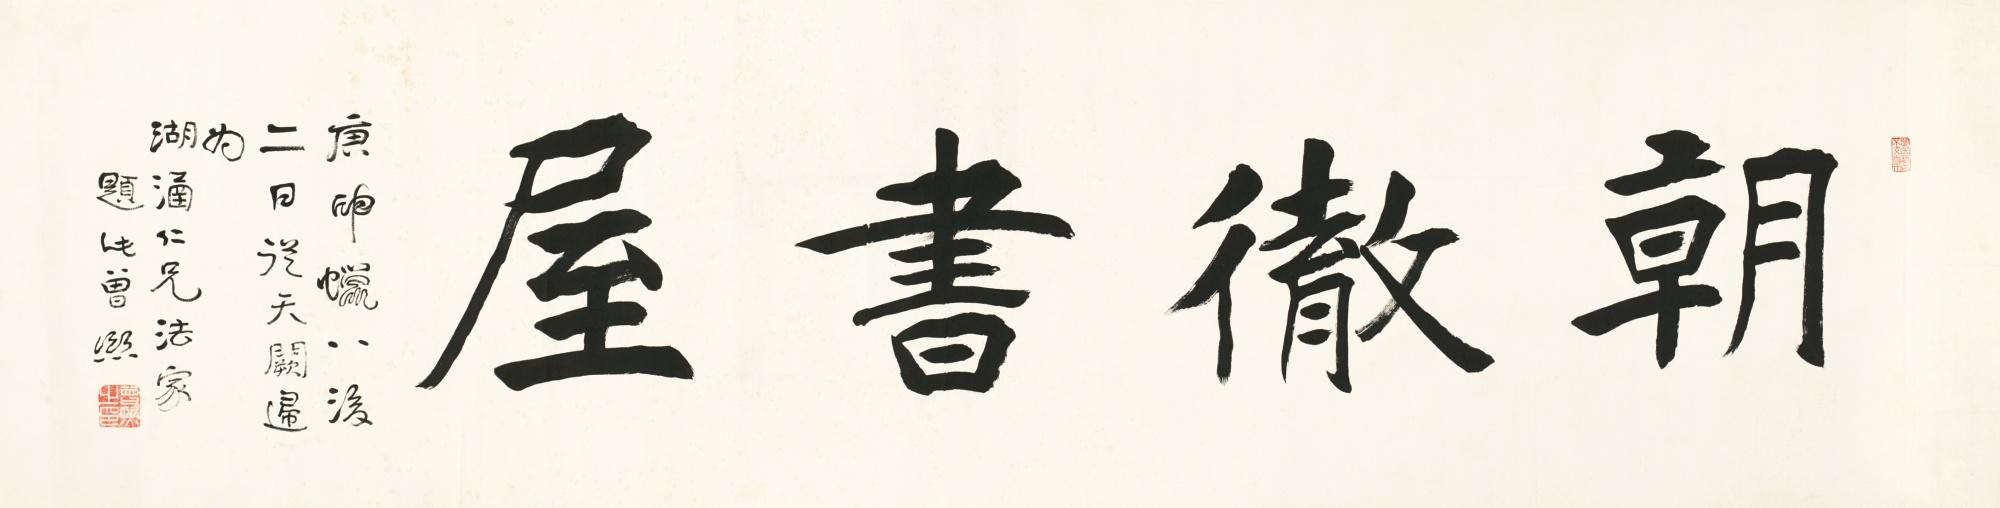 朝徹書屋
庚申蠟八後
二日從天闕歸
為
湖涵仁兄法家
題此曾熙